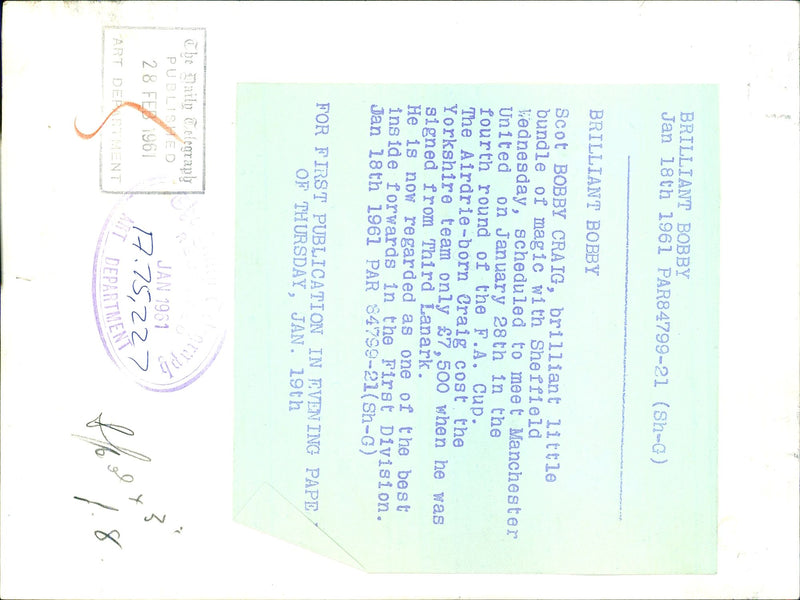 BRILLIANT BOBBY
Jan 18th 1961 PAR84799-21 (Sh-G)
BRILLIANT BOBBY
Scot BOBBY CRAIG, brilliant little
bundle of magic with Sheffield
Wednesday, scheduled to meet Manchester
United on January 28th in the
fourth round of the F.A. Cup.
The Airdrie-born Craig cost the
Yorkshire team only £7,500 when he was
signed from Third Lanark.
He is now regarded as one of the best
inside forwards in the First Division.
Jan 18th 1961 PAR 84799-21(Sh-G)
FOR FIRST PUBLICATION IN EVENING PAPE
OF THURSDAY, JAN. 19th
The Daily Telegraph
PUBLISHED
28 FEB 1961
ART DEPARTMENT
JAN 1961
17.75,227
ART DEPARTMENT
1.8